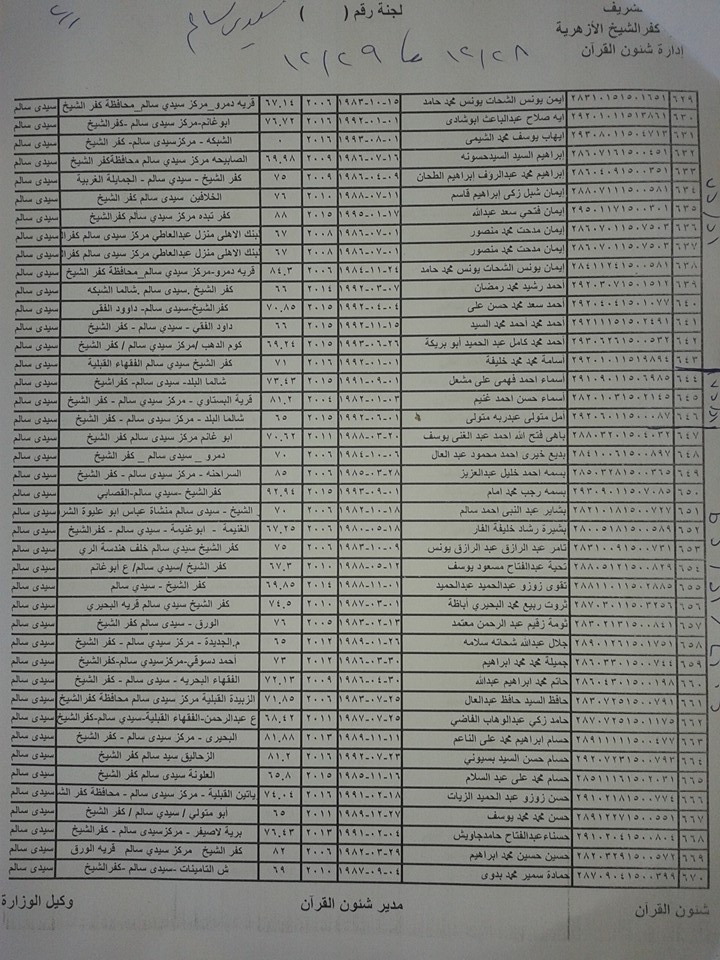 لجنة رقم ( )
سيدى سالم
شريف
كفر الشيخ الأزهرية
إدارة شئون القرآن
١٢/٢٨ ١٢/٢٩
٦٢٩ ٢٨٣١٠١٥١٥٠١٦٥١ ايمن يونس الشحات يونس محمد حامد ١٩٨٣-١٠-١٥ ٢٠٠٦ ٦٧,١٤ قريه دمرو_مركز سيدي سالم_محافظة كفر الشيخ سيدى سالم
٦٣٠ ٢٩٢٠١٠١١٥١٣٨٦١ ايه صلاح عبدالباعث ابوشادى ١٩٩٢-٠١-٠١ ٢٠١٦ ٧٦,٧٢ ابوغانم-مركز سيدي سالم -كفرالشيخ سيدى سالم
٦٣١ ٢٩٣٠٨٠١١٥٠٤٧١٣ ايهاب يوسف محمد الشيمى ١٩٩٣-٠٨-٠١ ٢٠١٦ ٠ الشبكه - مركزسيدي سالم- كفر الشيخ سيدى سالم
٦٣٢ ٢٨٦٠٧١٦١٥٠٠٤٥١ إبراهيم السيد السيدحسونه ١٩٨٦-٠٧-١٦ ٢٠٠٩ ٦٩,٩٨ الصابيحه مركز سيدي سالم محافظةكفر الشيخ سيدى سالم
٦٣٣ ٢٨٦٠٤٠٩١٥٠٠٣٥١ إبراهيم محمد عبدالروف إبراهيم الطحان ١٩٨٦-٠٤-٠٩ ٢٠٠٩ ٧٥ كفر الشيخ - سيدي سالم - الجمايلة الغربية سيدى سالم
٦٣٤ ٢٨٨٠٧١١١٥٠٠٥٨١ إيمان شبل زكى إبراهيم قاسم ١٩٨٨-٠٧-١١ ٢٠١٠ ٧٦ الخلافين سيدي سالم كفر الشيخ سيدى سالم
٦٣٥ ٢٩٥٠١١٧١٥٠٠٣٠١ إيمان فتحي سعد عبدالله ١٩٩٥-٠١-١٧ ٢٠١٥ ٨٨ كفر تيده مركز سيدي سالم كفرالشيخ سيدى سالم
٦٣٦ ٢٨٦٠٧٠١١٥٠٧٥٠٣ إيمان مدحت محمد منصور ١٩٨٦-٠٧-٠١ ٢٠٠٨ ٦٧ بنك الاهلى منزل عبدالعاطي مركز سيدى سالم كفرال سيدى سالم
٦٣٧ ٢٨٦٠٧٠١١٥٠٧٥٠٣ إيمان مدحت محمد منصور ١٩٨٦-٠٧-٠١ ٢٠٠٨ ٦٧ بنك الاهلى منزل عبدالعاطي مركز سيدى سالم كفرال سيدى سالم
٦٣٨ ٢٨٤١١٢٤١٥٠٠٥٨١ إيمان يونس الشحات يونس محمد حامد ١٩٨٤-١١-٢٤ ٢٠٠٦ ٨٤,٣ قريه دمرو-مركز سيدي سالم_محافظة كفر الشيخ سيدى سالم
٦٣٩ ٢٩٢٠٣٠٧١٥٠١٥١٢ احمد رشيد محمد رمضان ١٩٩٢-٠٣-٠٧ ٢٠١٤ ٦٦ كفر الشيخ .سيدى سالم .شالما الشبكه سيدى سالم
٦٤٠ ٢٩٢٠٤٠٤١٥٠١٠٧٧ احمد سعد محمد حسن على ١٩٩٢-٠٤-٠٤ ٢٠١٥ ٧٠,٨٥ كفرالشيخ-سيدى سالم- داوود الفقى سيدى سالم
٦٤١ ٢٩٢١١١٥١٥٠٢٤٩١ احمد محمد احمد محمد السيد ١٩٩٢-١١-١٥ ٢٠١٥ ٦٦ داود الفقي - سيدي سالم - كفر الشيخ سيدى سالم
٦٤٢ ٢٩٣٠٦٢٦١٥٠٠٥٣٢ احمد محمد كامل عبد الحميد ابو بريكة ١٩٩٣-٠٦-٢٦ ٢٠١٥ ٦٩,٢٤ كوم الدهب /مركز سيدي سالم / كفر الشيخ سيدى سالم
٦٤٣ ٢٩٢٠١٠١١٥١٩٨٩٤ أسامة محمد محمد خليفة ١٩٩٢-٠١-٠١ ٢٠١٦ ٧١ كفر الشيخ سيدي سالم الفقهاء القبلية سيدى سالم
٦٤٤ ٢٩١٠٩٠١١٥٠٦٩٨٥ اسماء احمد فهمى على مشعل ١٩٩١-٠٩-٠١ ٢٠١٥ ٧٣,٤٣ شالما البلد- سيدى سالم- كفراشيخ سيدى سالم
٦٤٥ ٢٨٢٠١٠٣١٥٠٢١٤٥ اسماء حسن احمد غنيم ١٩٨٢-٠١-٠٣ ٢٠٠٤ ٨١,٢ قرية البستاوي - مركز سيدي سالم - كفر الشيخ سيدى سالم
٦٤٦ ٢٩٢٠٦٠١١٥٠٠٠٨٧ امل متولى عبدربه متولى ١٩٩٢-٠٦-٠١ ٢٠١٥ ٦٥ شالما البلد - مركز سيدي سالم - كفر الشيخ سيدى سالم
٦٤٧ ٢٨٨٠٣٢٠١٥٠٤٠٣٢ باهى فتح الله احمد عبد الغنى يوسف ١٩٨٨-٠٣-٢٠ ٢٠١١ ٧٠,٦٢ ابو غانم مركز سيدي سالم كفر الشيخ سيدى سالم
٦٤٨ ٢٨٤١٠٠٦١٥٠٠٨٩٧ بديع خيرى احمد محمود عبد العال ١٩٨٤-١٠-٠٦ ٢٠٠٦ ٧٠ دمرو _ سيدي سالم _ كفر الشيخ سيدى سالم
٦٤٩ ٢٨٥٠٣٢٨١٥٠٠٣٦٥ بسمه احمد خليل عبدالعزيز ١٩٨٥-٠٣-٢٨ ٢٠٠٦ ٨٥ السراحنه - مركز سيدي سالم - كفر الشيخ سيدى سالم
٦٥٠ ٢٩٣٠٩٠١١٥٠٧٠٨٥ بسمه رجب محمد امام ١٩٩٣-٠٩-٠١ ٢٠١٥ ٩٢,٩٤ كفرالشيخ -سيدي سالم-القصابي سيدى سالم
٦٥١ ٢٨٢١٠١٨١٥٠٠٧٢٧ بشاير عبد النبى احمد سالم ١٩٨٢-١٠-١٨ ٢٠٠٦ ٧٠ الشيخ - سيدي سالم منشاة عباس ابو عليوة الشر سيدى سالم
٦٥٢ ٢٨٠٠٥١٨١٥٠٠٥٨٩ بشيرة رشاد خليفة الفار ١٩٨٠-٠٥-١٨ ٢٠٠٦ ٦٧,٢٥ الغنيمة - ابوغنيمة - سيدي سالم - كفرالشيخ سيدى سالم
٦٥٣ ٢٨٣١٠٠٩١٥٠٠٧٣١ تامر عبد الرازق عبد الرازق يونس ١٩٨٣-١٠-٠٩ ٢٠٠٦ ٧٥ كفر الشيخ سيدي سالم خلف هندسة الري سيدى سالم
٦٥٤ ٢٨٨٠٥١٢١٥٠٠٨٢٩ تحية عبدالفتاح مسعود يوسف ١٩٨٨-٠٥-١٢ ٢٠١٠ ٦٧,٣ كفر الشيخ /سيدي سالم/ ع ابوغانم سيدى سالم
٦٥٥ ٢٨٨١١٠١١٥٠٢٨٨٥ تقوى زوزو عبدالحميد عبدالحميد ١٩٨٨-١١-٠١ ٢٠١٤ ٦٩,٨٥ كفر الشيخ - سيدي سالم سيدى سالم
٦٥٦ ٢٨٧٠٣٠١١٥٠٣٢٥٦ ثروت ربيع محمد البحيري أباظة ١٩٨٧-٠٣-٠١ ٢٠١٠ ٧٤,٥ كفر الشيخ سيدي سالم قريه البحيري سيدى سالم
٦٥٧ ٢٨٣٠٢١٣١٥٠٠٨٤١ تومة زقيم عبد الرحمن معتمد ١٩٨٣-٠٢-١٣ ٢٠٠٥ ٧٦ الورق - سيدي سالم - كفر الشيخ سيدى سالم
٦٥٨ ٢٨٩٠١٢٦١٥٠١٧٥١ جلال عبدالله شحاته سلامه ١٩٨٩-٠١-٢٦ ٢٠١٢ ٦٥ م.الجديدة - مركز سيدي سالم - كفر الشيخ سيدى سالم
٦٥٩ ٢٨٦٠٣٣٠١٥٠٠٧٤٤ جميلة محمد محمد ابراهيم ١٩٨٦-٠٣-٣٠ ٢٠١٢ ٧٣ أحمد دسوقي-مركزسيدي سالم-كفرالشيخ سيدى سالم
٦٦٠ ٢٨٦٠٤٣٠١٥٠٠١٩٨ حاتم محمد ابراهيم عبدالله ١٩٨٦-٠٤-٣٠ ٢٠٠٩ ٧٢,١٣ الفقهاء البحريه - سيدي سالم - كفر الشيخ سيدى سالم
٦٦١ ٢٨٣٠٧٢٥١٥٠٠٧٩١ حافظ السيد حافظ عبدالعال ١٩٨٣-٠٧-٢٥ ٢٠٠٦ ٧١,٨٥ الزبيدة القبلية مركز سيدى سالم محافظة كفر الشيخ سيدى سالم
٦٦٢ ٢٨٧٠٧٢٥١٥٠١١٧٥ حامد زكى عبدالوهاب القاضي ١٩٨٧-٠٧-٢٥ ٢٠١١ ٦٨,٤٢ ع عبدالرحمن-الفقهاء القبلية-سيدي سالم-كفرالشيخ سيدى سالم
٦٦٣ ٢٨٩١١١١١٥٠٠٤٧٧ حسام ابراهيم محمد على الناعم ١٩٨٩-١١-١١ ٢٠١٣ ٨١,٨٨ البحيرى - مركز سيدي سالم - كفر الشيخ سيدى سالم
٦٦٤ ٢٩٢٠٧٢٣١٥٠٠٧٩٣ حسام حسن السيد بسيوني ١٩٩٢-٠٧-٢٣ ٢٠١٦ ٨١,٢ الزحاليق سيد سالم كفر الشيخ سيدى سالم
٦٦٥ ٢٨٥١١١٦١٥٠٢٠٣١ حسام محمد على عبد السلام ١٩٨٥-١١-١٦ ٢٠١٥ ٦٥,٨ العلونة سيدى سالم كفر الشيخ سيدى سالم
٦٦٦ ٢٩١٠٢١٨١٥٠٠٧٧٤ حسن زوزو عبد الحميد الزيات ١٩٩١-٠٢-١٨ ٢٠١٦ ٧٤,٠٤ ياتين القبلية - مركز سيدي سالم - محافظة كفر الش سيدى سالم
٦٦٧ ٢٨٩١٢٢٧١٥٠٠٥٥١ حسن محمد محمد يوسف ١٩٨٩-١٢-٢٧ ٢٠١١ ٦٥ أبو متولي / سيدي سالم / كفر الشيخ سيدى سالم
٦٦٨ ٢٩١٠٢٠٤١٥٠٠٩٠٦ حسناءعبدالفتاح حامدجاويش ١٩٩١-٠٢-٠٤ ٢٠١٣ ٧٦,٤٣ برية لاصيفر - مركزسيدى سالم - كفرالشيخ سيدى سالم
٦٦٩ ٢٨٢٠٣٢٩١٥٠٠٥٧٢ حسين حسين محمد ابراهيم ١٩٨٢-٠٣-٢٩ ٢٠٠٦ ٨٢ كفر الشيخ مركز سيدي سالم قريه الورق سيدى سالم
٦٧٠ ٢٨٧٠٩٠٤١٥٠٠٣٩٩ حمادة سمير محمد بدوى ١٩٨٧-٠٩-٠٤ ٢٠١٠ ٦٩ ش التامينات -سيدي سالم -كفرالشيخ سيدى سالم
شئون القرآن
مدير شئون القرآن
وكيل الوزارة